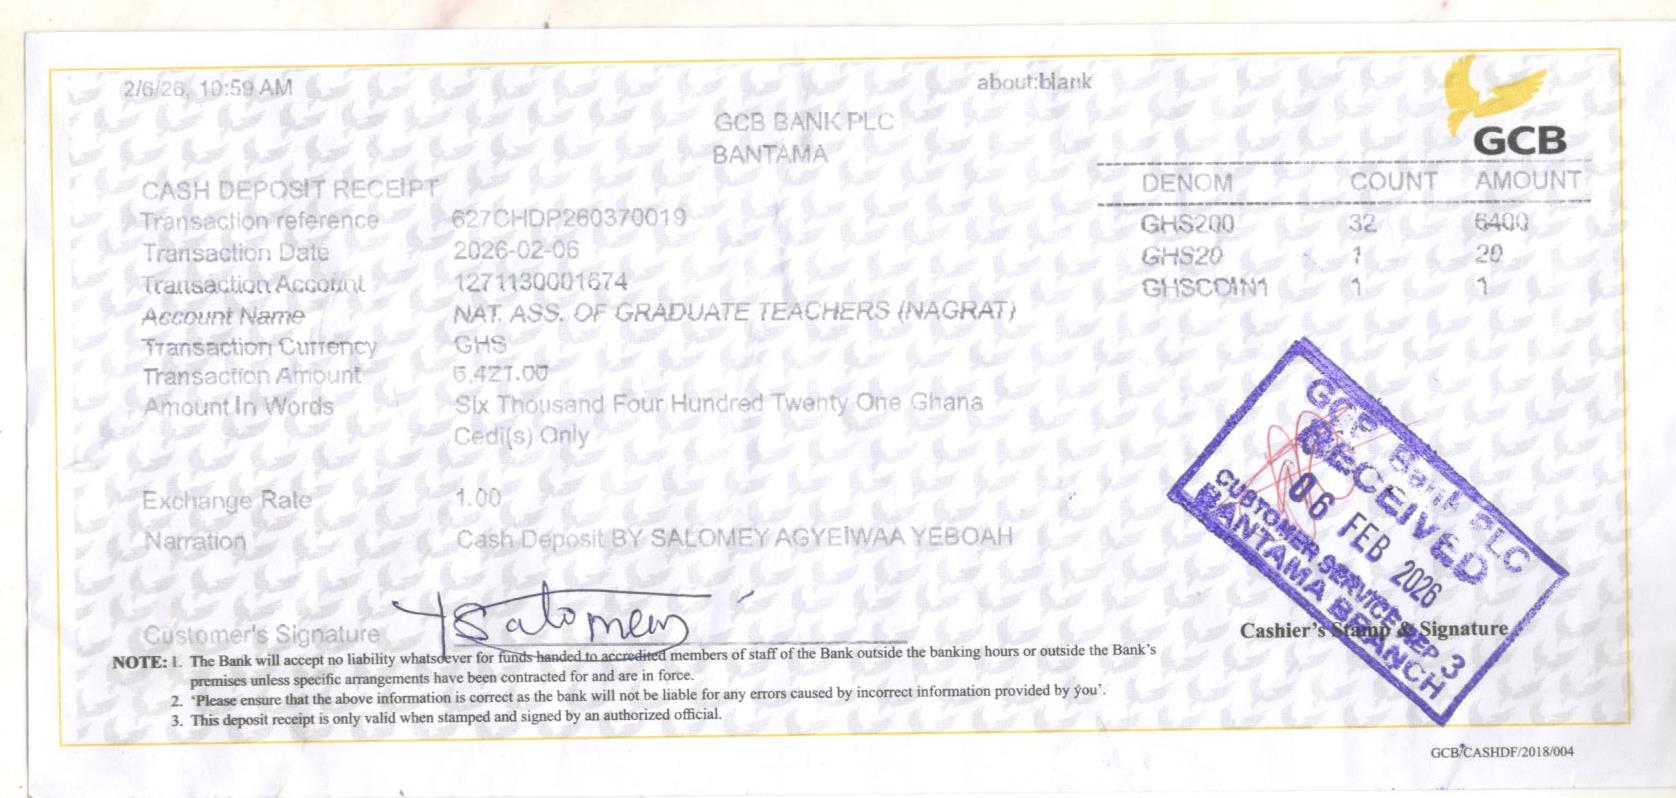 2/6/26, 10:59 AM about:blank
GCB BANK PLC
BANTAMA
GCB
CASH DEPOSIT RECEIPT
Transaction reference 627CHDP260370019
Transaction Date 2026-02-06
Transaction Account 1271130001674
Account Name NAT. ASS. OF GRADUATE TEACHERS (NAGRAT)
Transaction Currency GHS
Transaction Amount 6,421.00
Amount In Words Six Thousand Four Hundred Twenty One Ghana
Cedi(s) Only
Exchange Rate 1.00
Narration Cash Deposit BY SALOMEY AGYEIWAA YEBOAH
DENOM COUNT AMOUNT
GHS200 32 6400
GHS20 1 20
GHSCOIN1 1 1
GCB Bank PLC
RECEIVED
06 FEB 2026
CUSTOMER SERVICE REP 3
BANTAMA BRANCH
Customer's Signature Salomey
Cashier's Stamp & Signature
NOTE: 1. The Bank will accept no liability whatsoever for funds handed to accredited members of staff of the Bank outside the banking hours or outside the Bank's
premises unless specific arrangements have been contracted for and are in force.
2. 'Please ensure that the above information is correct as the bank will not be liable for any errors caused by incorrect information provided by you'.
3. This deposit receipt is only valid when stamped and signed by an authorized official.
GCB/CASHDF/2018/004